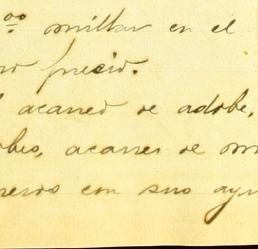 oo millar en el
mo precio.
acarreo de adobe,
obes, acarreo de m
neros con sus ayu